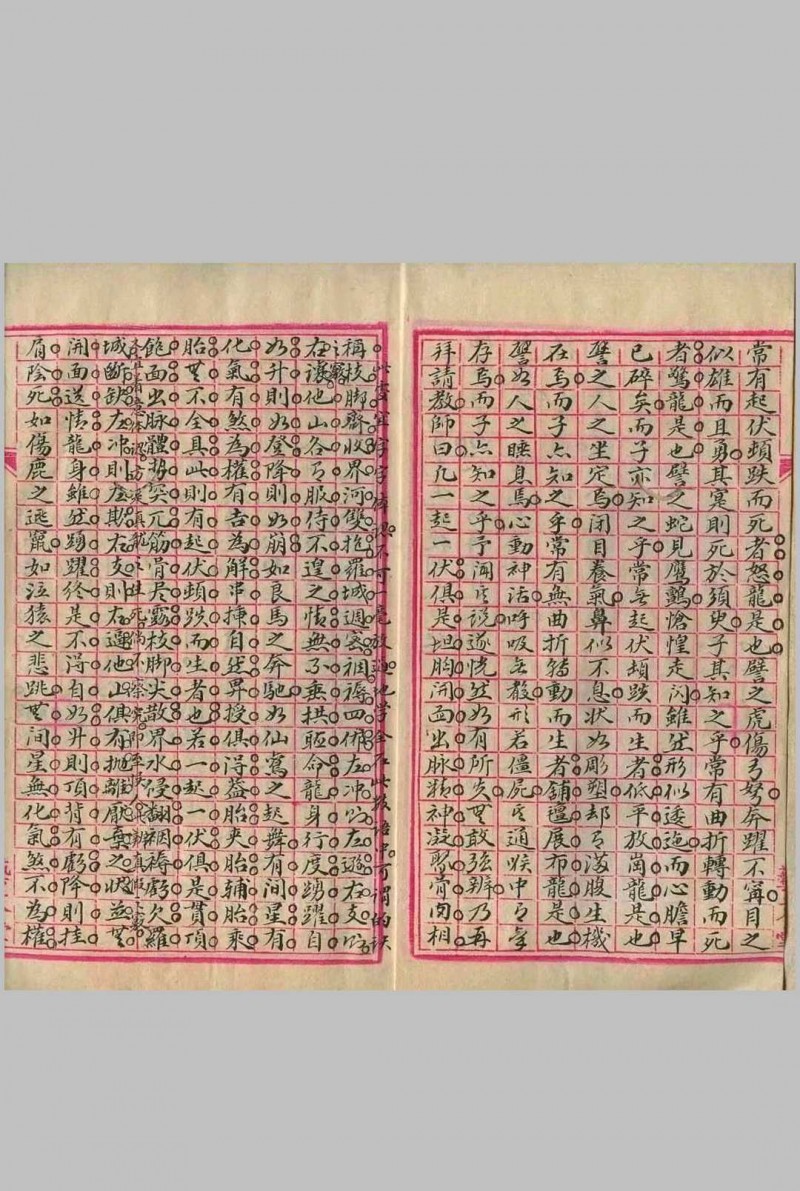 常有起伏頓跌而死者怒龍是也譬之虎傷弓弩奔躍不寗目之
似雄而且勇其寔則死於須臾子其知之乎常有曲折轉動而死
者驚龍是也譬之蛇見鷹鸇愴惶走闪雖然形似逶迤而心膽早
已碎矣而子亦知之乎常无起伏頓跌而生者低平放崗龍是也
譬之人之坐定焉闭目養氣鼻似不息状如彫塑却有滿腹生機
在焉而子亦知之乎常有無曲折轉動而生者舖氊展布龍是也
譬如人之睡息焉心動神活呼吸无數形若僵屍
存焉而子亦知之乎予闻其説遂恍然如有所失無敢強辨乃再
拜請教師曰凡一起一伏俱是坦胸闲面出脉精神凝聚骨肉相
稱枝脚齊收界河雙抱羅城週密裀褥四備左冲
右護他山各有服侍不遑情無不垂拱聽命龍身行度踴躍自
如升則如登降則如崩如良馬之奔馳如仙鸞之起舞有间星有
化氣有煞為權有吉為解串揀自然界授俱淂益胎夾胎輔胎乘
胎無不全具此則有起伏頓跌而生者也若一起一伏俱是貫頂
飽面出脉體勢突兀筋骨尽露枝脚尖散界水侵翻裀褥虧欠羅
城断缺左冲則左欺右支則右遁他山俱有抛離厭棄之状並無
開面送情龍身雖然踴躍終是不淂自如升則頂背有虧降則挂
肩陰死如傷鹿之逃鼠如泣猿之悲跳無间星無化氣煞不為權